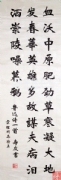 血沃中原肥劲草寒凝大地
发春华英雄多故谋夫病泪
洒崇陵噪暮鸦
鲁迅诗一首